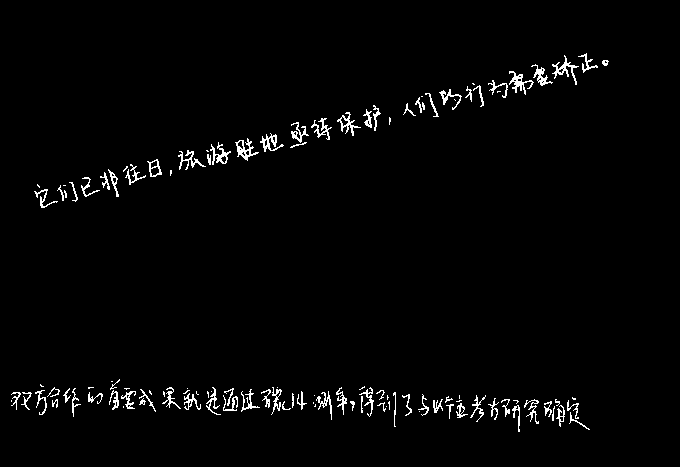 它们已非往日,旅游胜地亟待保护,人们的行为需要矫正。
双方合作的首要成果就是通过碳14测年,得到了与以往考古研究确定